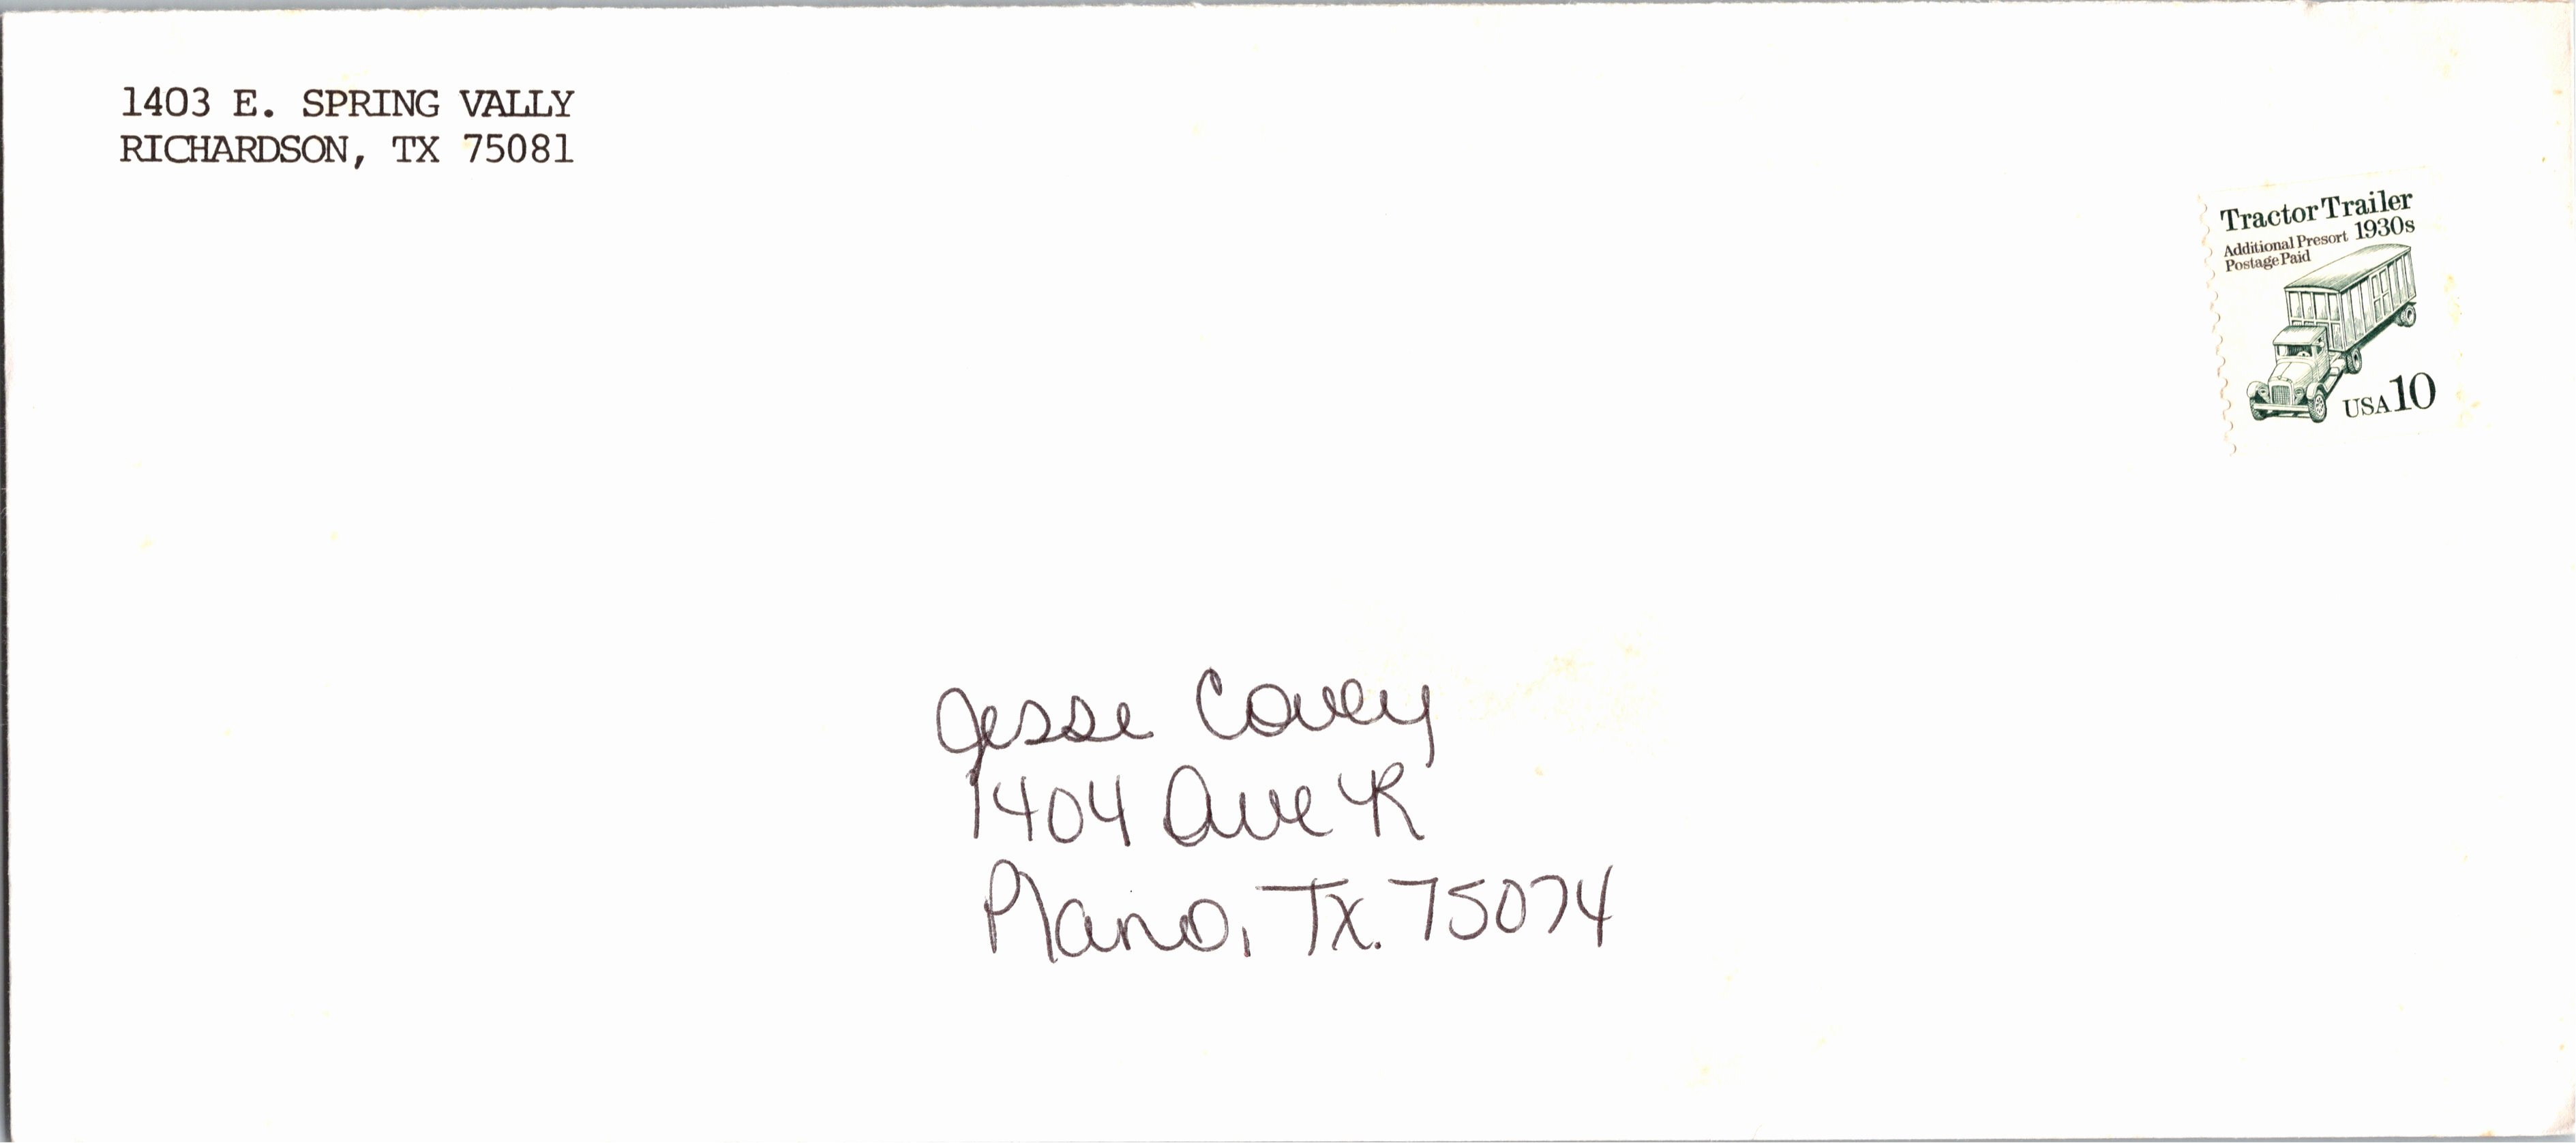 1403 E. SPRING VALLY
RICHARDSON, TX 75081
Tractor Trailer
Additional Presort 1930s
Postage Paid
USA 10
Jesse Covey
1404 Ave R
Plano, Tx. 75074